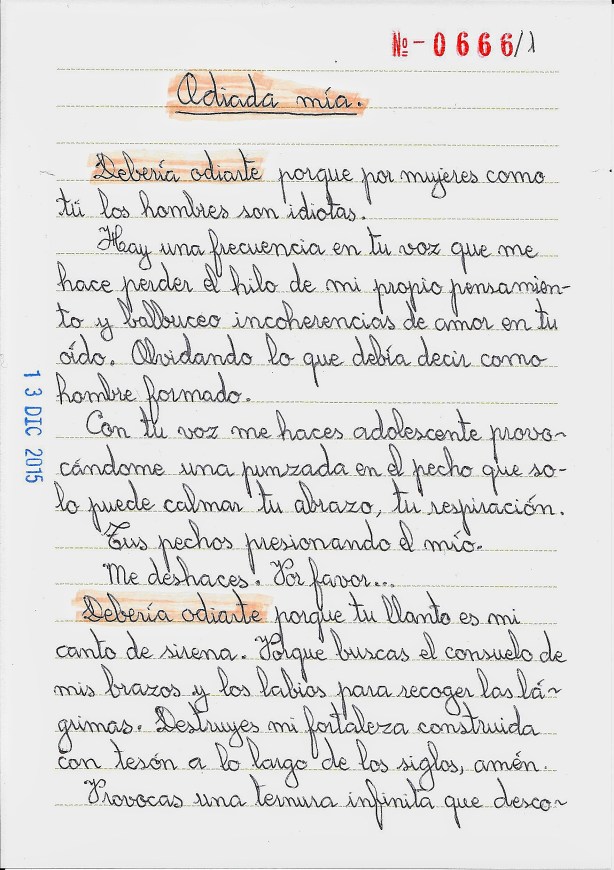 Nº-0666/1
Odiada mía.
Debería odiarte porque por mujeres como
tú los hombres son idiotas.
Hay una frecuencia en tu voz que me
hace perder el hilo de mi propio pensamien-
to y balbuceo incoherencias de amor en tu
oído. Olvidando lo que debía decir como
hombre formado.
Con tu voz me haces adolescente provo-
cándome una punzada en el pecho que so-
lo puede calmar tu abrazo, tu respiración.
Tus pechos presionando el mío.
Me deshaces. Por favor...
Debería odiarte porque tu llanto es mi
canto de sirena. Porque buscas el consuelo de
mis brazos y los labios para recoger las lá-
grimas. Destruyes mi fortaleza construida
con tesón a lo largo de los siglos, amén.
Provocas una ternura infinita que desco-
13 DIC 2015